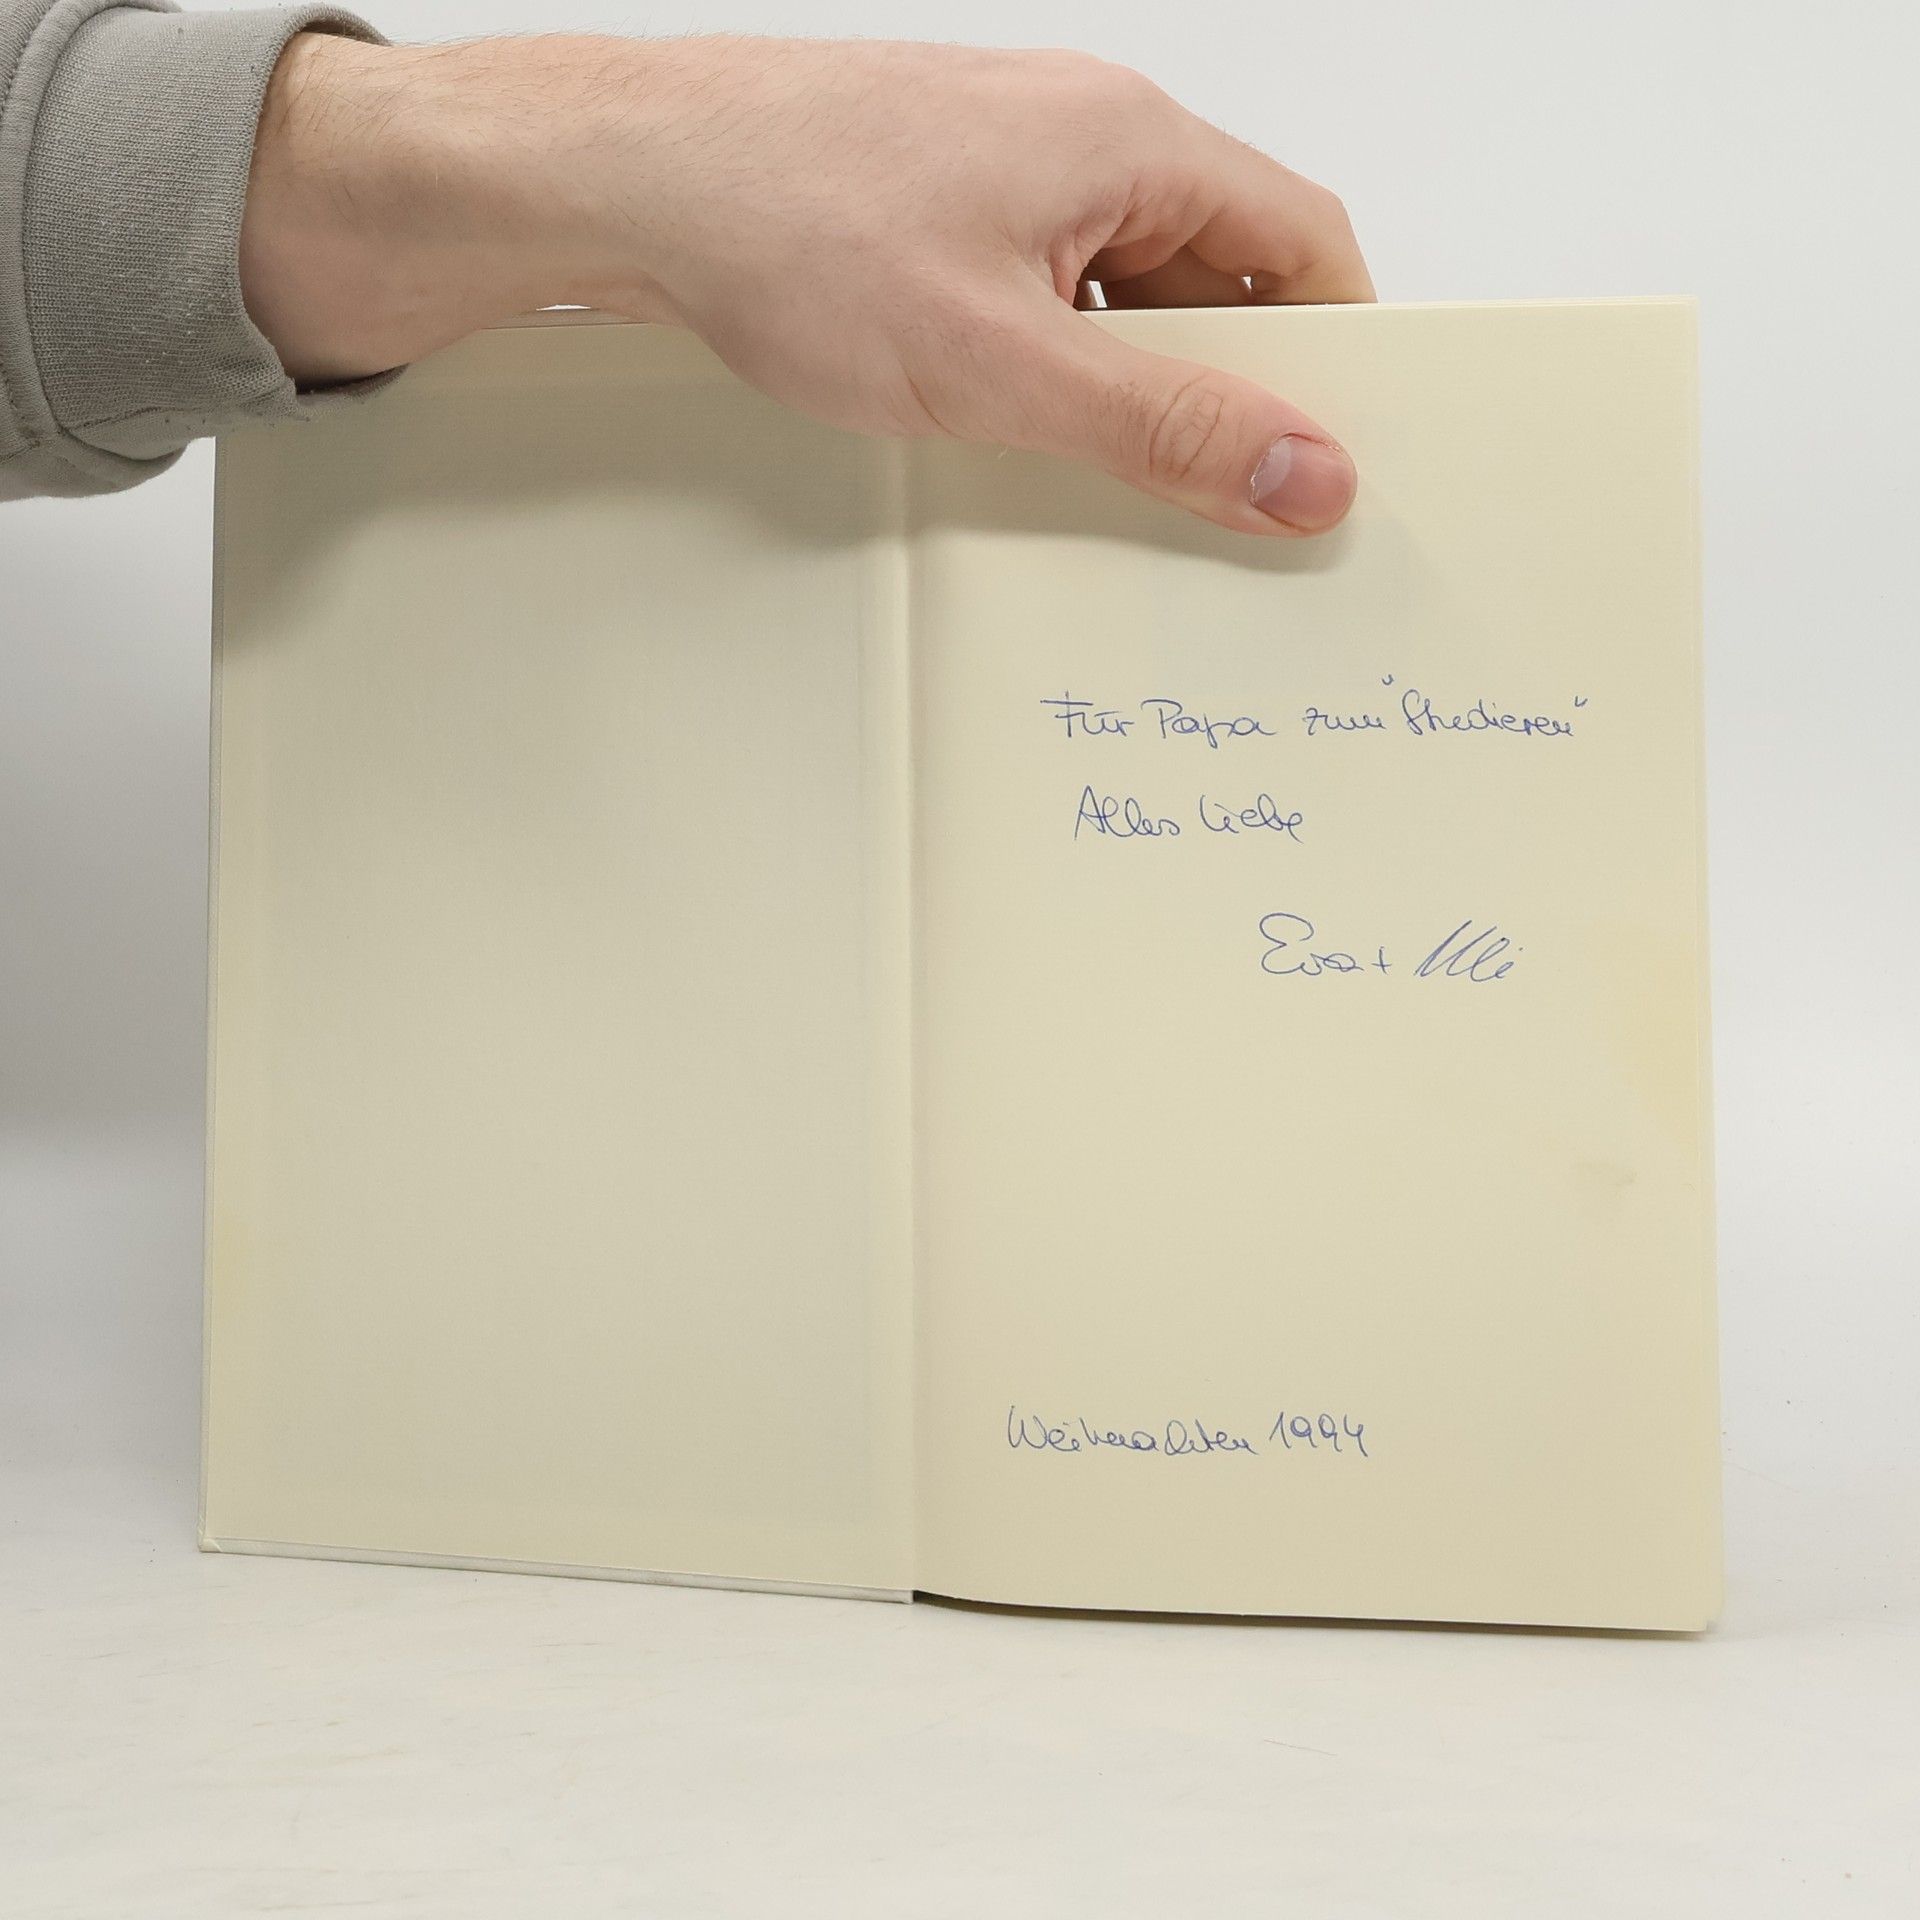 Für Papa zum "Studieren"
Alles Liebe
Eva + Uli
Weihnachten 1994